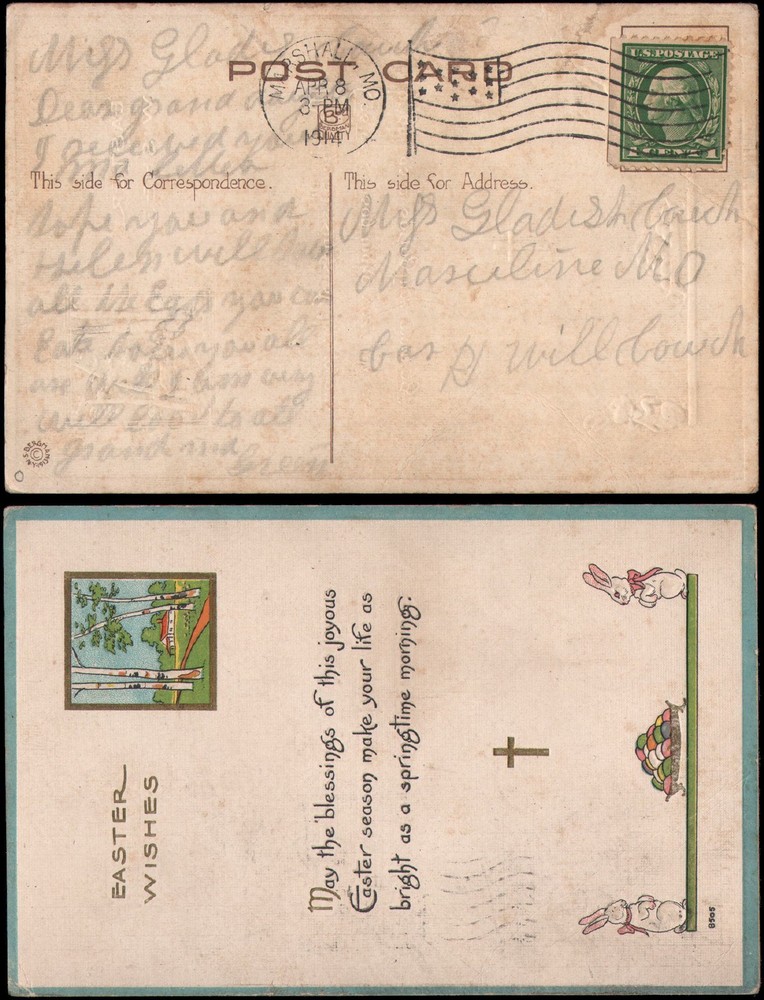 Miss Gladish Couch
POST CARD
MARSHALL, MO.
APR 8
3-PM
1914
U.S. POSTAGE
1 1
Dear grand
I received your
letter
This side for Correspondence.
hope you and
Helen will have
all the Eggs you can
Eat hope you all
are well I am very
well to all
grand ma
Green
This side for Address.
Miss Gladish Couch
Masculine MO
Car H Will Couch
EASTER
WISHES
May the blessings of this joyous
Easter season make your life as
bright as a springtime morning.
8505